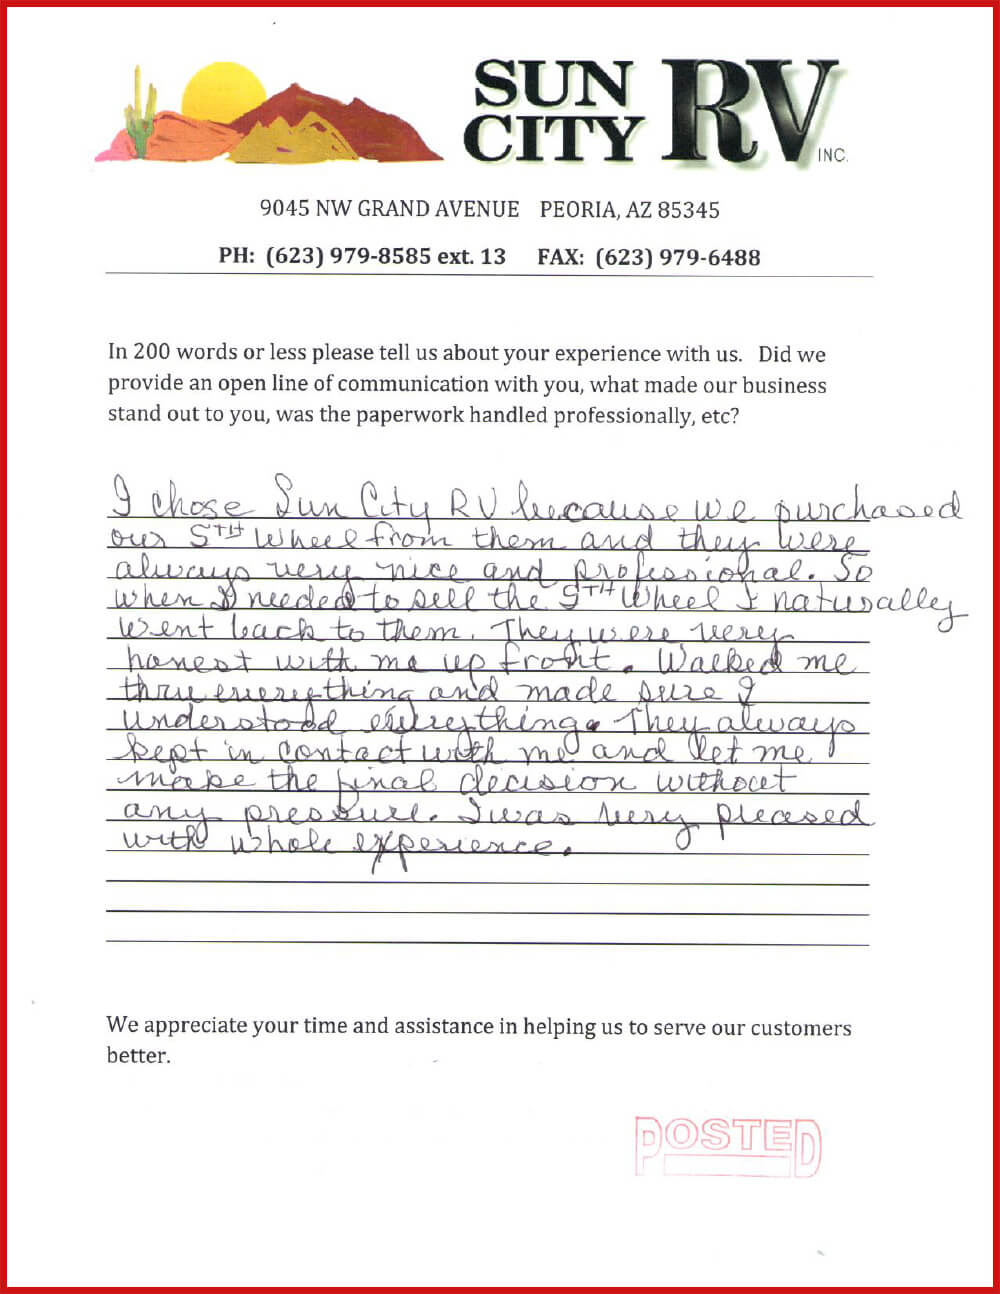 SUN CITY RV INC.
9045 NW GRAND AVENUE PEORIA, AZ 85345
PH: (623) 979-8585 ext. 13 FAX: (623) 979-6488
In 200 words or less please tell us about your experience with us. Did we
provide an open line of communication with you, what made our business
stand out to you, was the paperwork handled professionally, etc?
I chose Sun City RV because we purchased
our 5TH Wheel from them and they were
always very nice and professional. So
when I needed to sell the 5TH Wheel I naturally
went back to them. They were very
honest with me up front. Walked me
thru everything and made sure I
understood everything. They always
kept in contact with me and let me
make the final decision without
any pressure. I was very pleased
with whole experience.
We appreciate your time and assistance in helping us to serve our customers
better.
POSTED